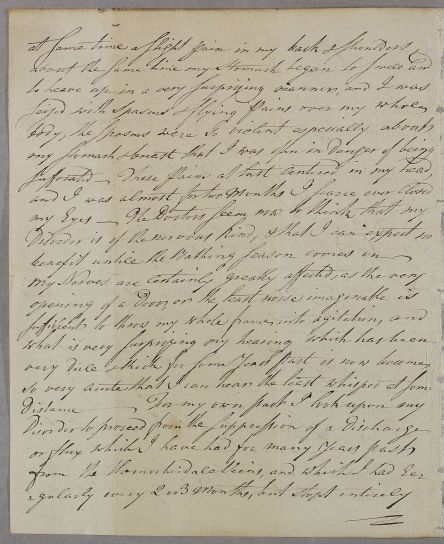 at same time a slight pain in my back & shoulders
about the same time my Stomach began to swell and
to heave up in a very surprizing manner, and I was
seized with spasms & flying Pains over my whole
body, the spasms were so violent especially about
my stomach & breast that I was often in Danger of being
suffocated — These Pains at last centered in my head,
and I was almost for two Months I scarce ever closed
my Eyes — The Doctors seem now to think that my
Disorder is of the nervous kind, & that I can expect no
benefit untill the Bathing Season comes on —
My Nerves are certainly greatly affected, as the very
opening of a Door, or the least noise imaginable is
sufficient to throw my whole frame into agitation, and
what is very surprizing my hearing which has been
very dull & thick for some Years past is now become
so very acute that I can hear the least whisper at some
Distance — For my own part I look upon my
Disorder to proceed from the suppression of a Discharge
or flux which I have had for many Years past
from the Hemorhoidale Veins, and which I had re-
gularly every 2 or 3 Months, but stopt entirely